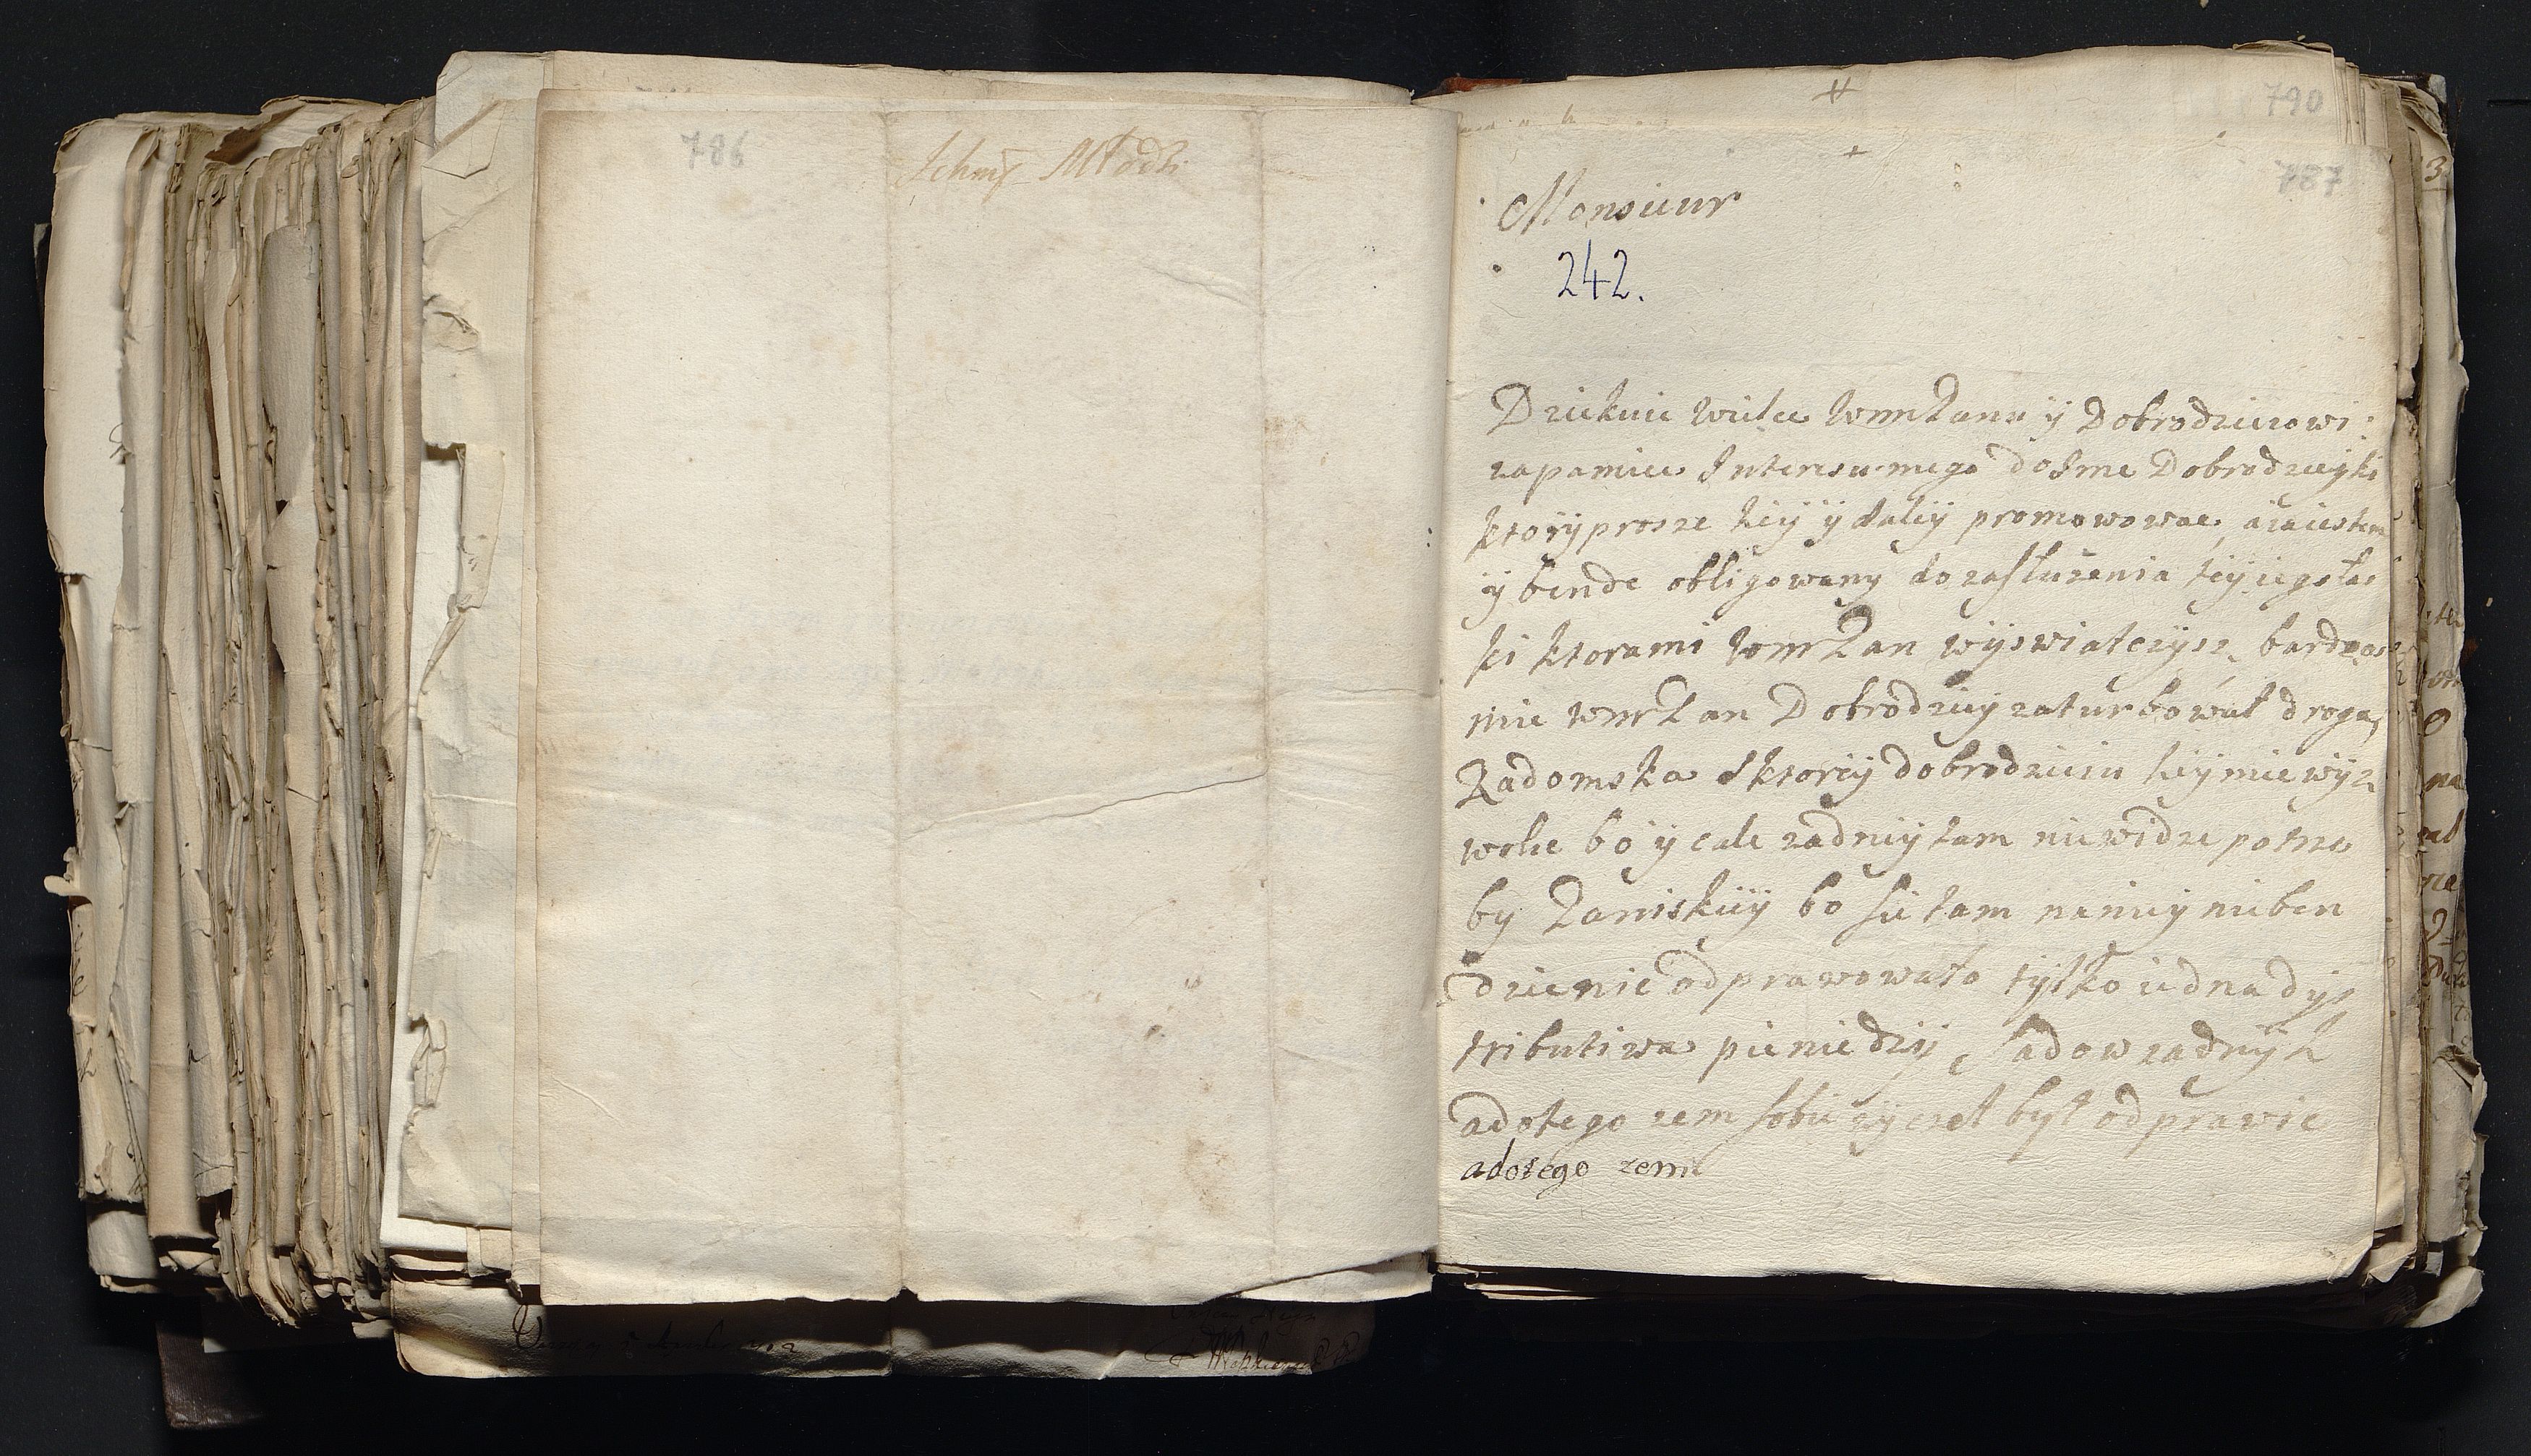 786
790
787
Monsieur
242.
Dziekuie wielce WmPanu y Dobrodzieiowi
zapamiec Interesu mego do Dobrodzieyki
ktory prosze y daley promowowac, aia iestem
y bende obligowany do zasluzenia tey iego las
ki ktorami WmPan wyswiatczysz, bardzos
mie WmPan Dobrodziey zaturbowal droga
Radomska Sktorey dobrodzieiu mie wyz
wolic bo y cale zadney tam nie widze potrze
by Paniskiey bo sie tam namniey nieben
dzie nic odprawowalo tylko iedna dys
tributiwa pieniedzy, sadow zadnych
adotego zem sobie zyczel byl odprawic
adotego zem